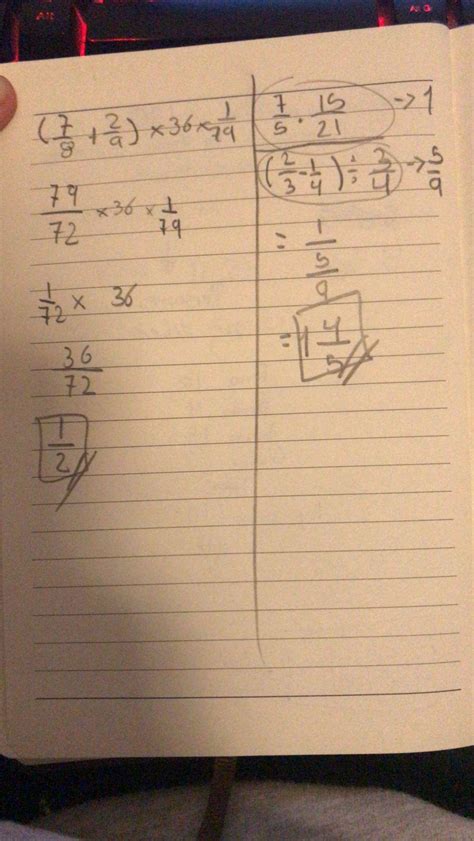 (7/8 + 2/9) × 36 × 1/79
79/72 × 36 × 1/79
1/72 × 36
36/72
1/2
7/5 · 15/21 → 1
(2/3 - 1/4) ÷ 3/4 → 5/9
= 1/(5/9)
= 1 4/5